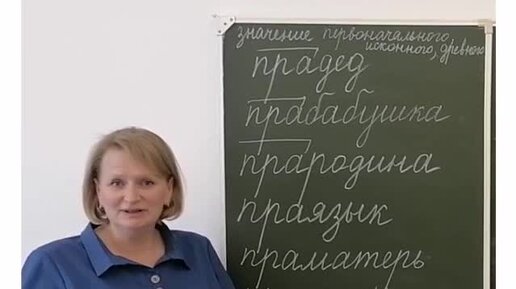 значение первоначального,
исконного, древнего
прадед
прабабушка
прародина
праязык
праматерь